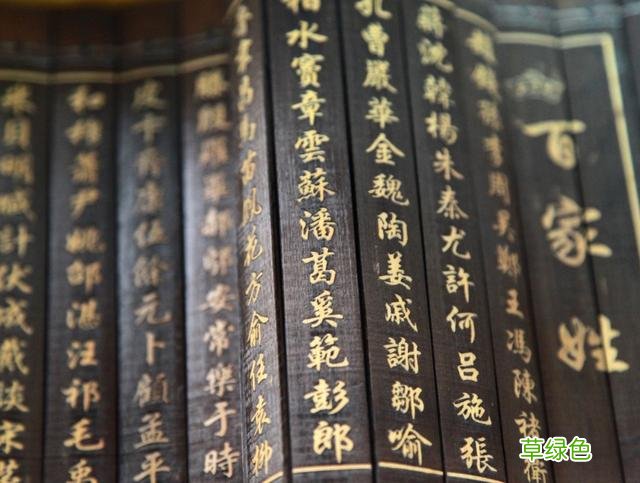 百家姓
趙錢孫李周吳鄭王馮陳褚衛
蔣沈韓楊朱秦尤許何呂施張
孔曹嚴華金魏陶姜戚謝鄒喻
柏水竇章雲蘇潘葛奚範彭郎
魯韋昌馬苗鳳花方俞任袁柳
滕殷羅畢郝鄔安常樂于時
皮卞齊康伍餘元卜顧孟平
和穆蕭尹姚邵湛汪祁毛禹
米貝明臧計伏成戴談宋
草绿色